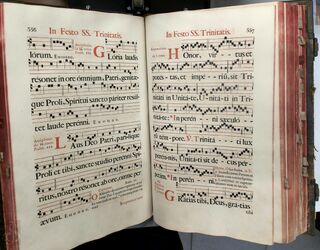 556
In Festo SS. Trinitatis.
GLoria laudis
lorum.
resonet in ore omnium, Patri, genitæ-
que Proli, Spiritui sancto pariter resul-
tet laude perenni. E u o u a e.
LAus Deo Patri, parilique
Proli et tibi, sancte studio perenni Spi-
ritus, nostro resonet ab ore, omne per
ævum. E u o u a e.
In Festo SS. Trinitatis.
557
HOnor, virtus et
potestas, et imperiū, sit Tri-
nitati in Unitate, Unitati in Trini-
tate: * In peren ni sæculo
rum tempore. V. Trinita ti lux
perennis, Unitati sit decus per-
petim. * In perenni
GRatias tibi, Deus, gratias
tibi